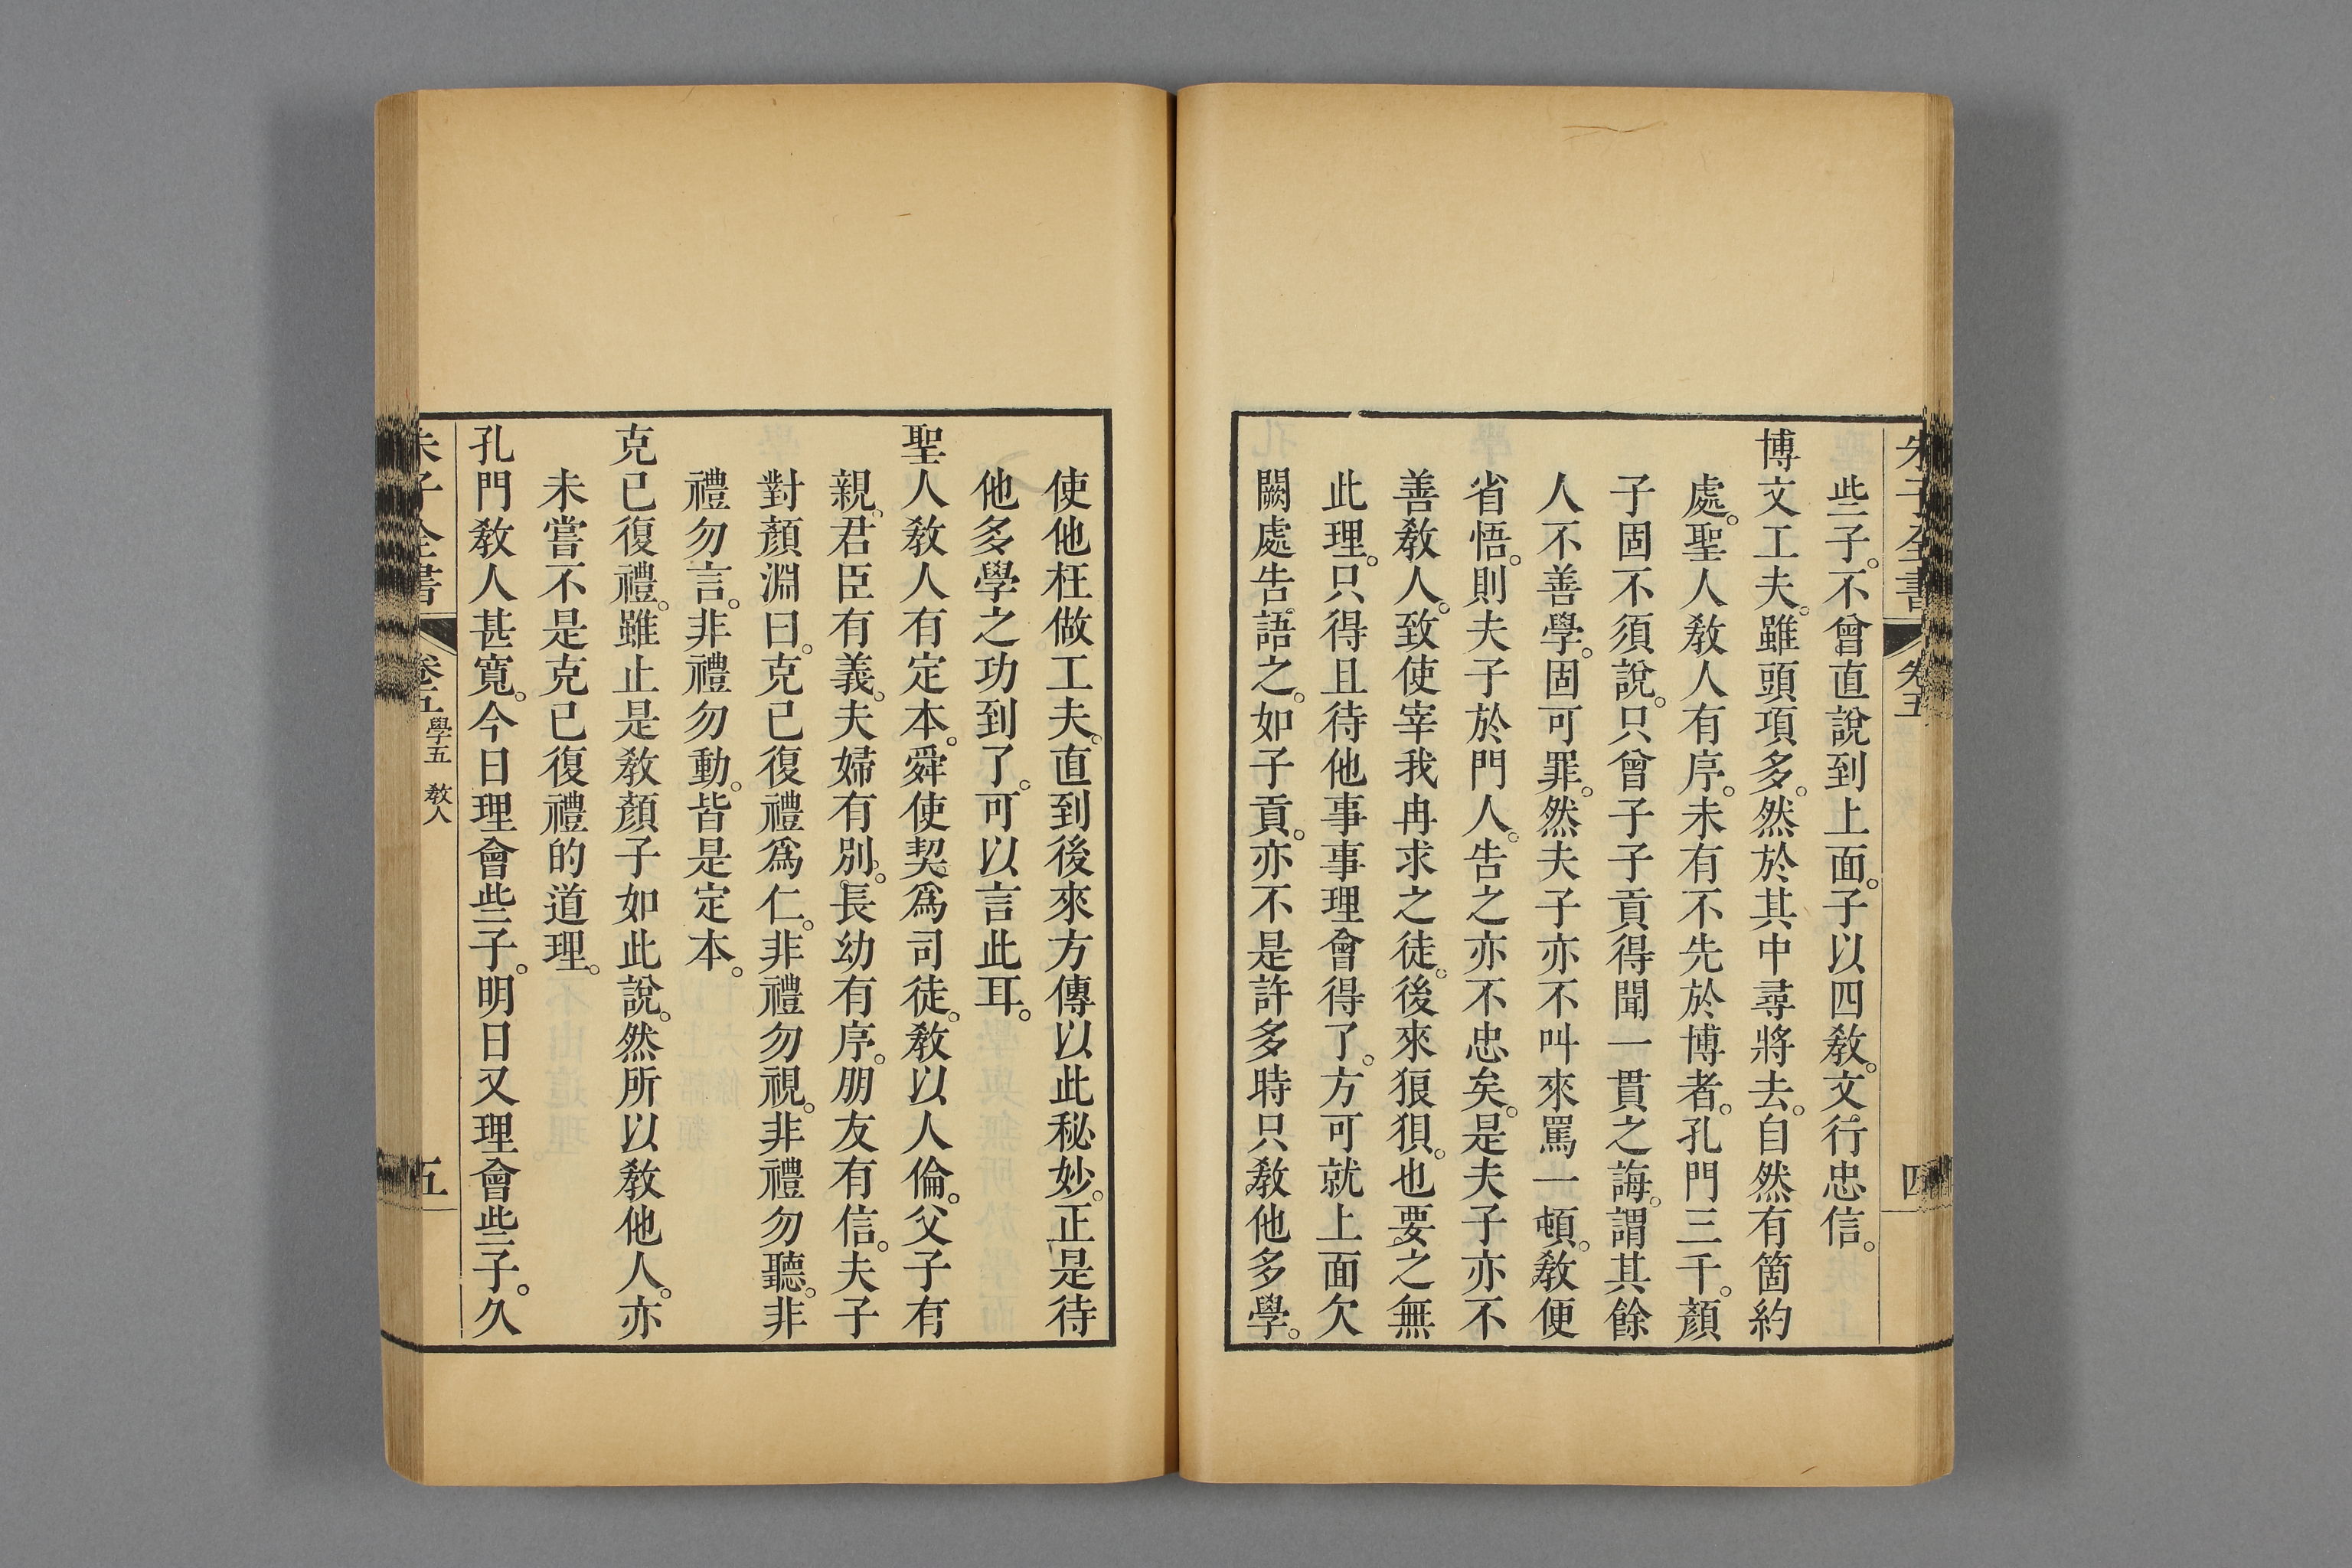 朱子全書 卷五 四
些子。不曾直說到上面。子以四敎。文行忠信。
博文工夫。雖頭項多。然於其中尋將去。自然有箇約
處。聖人敎人有序。未有不先於博者。孔門三千。顏
子固不須說。只曾子子貢得聞一貫之誨。謂其餘
人不善學。固可罪。然夫子亦不叫來罵一頓。敎便
省悟。則夫子於門人。告之亦不忠矣。是夫子亦不
善敎人。致使宰我冉求之徒。後來狼狽。也要之無
此理。只得且待他事事理會得了。方可就上面欠
闕處告語之。如子貢。亦不是許多時只敎他多學。
使他枉做工夫。直到後來方傳以此秘妙。正是待
他多學之功到了。可以言此耳。
聖人敎人有定本。舜使契爲司徒。敎以人倫。父子有
親。君臣有義。夫婦有別。長幼有序。朋友有信。夫子
對顏淵曰。克己復禮爲仁。非禮勿視。非禮勿聽。非
禮勿言。非禮勿動。皆是定本。
克己復禮。雖止是敎顏子如此說。然所以敎他人。亦
未嘗不是克己復禮的道理。
孔門敎人甚寬。今日理會些子。明日又理會些子。久
朱子全書 卷五 學五 敎人 五